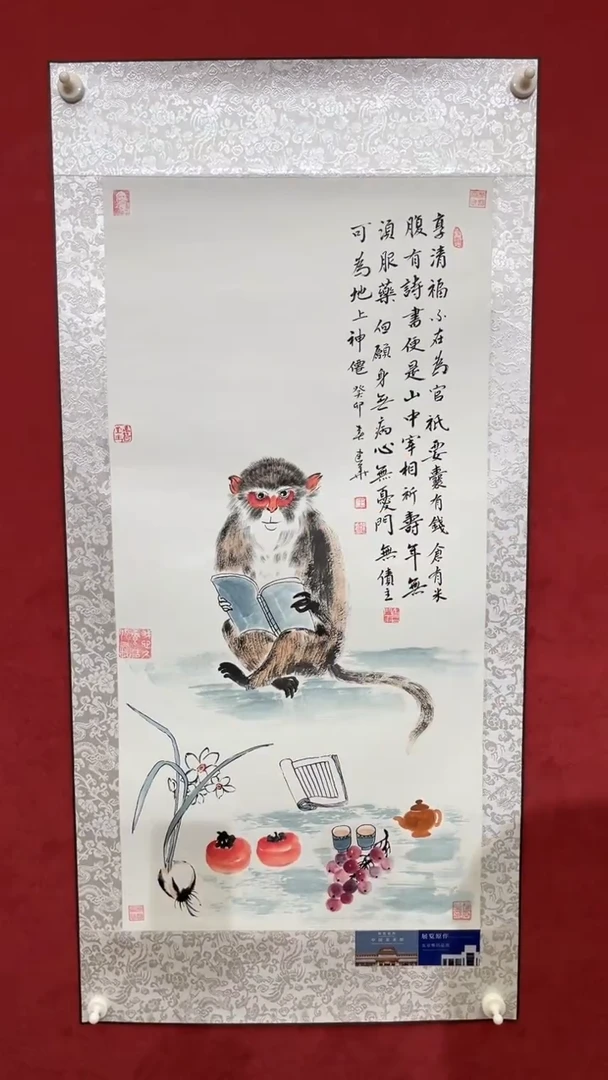 享清福不在為官祇要囊有錢倉有米
腹有詩書便是山中宰相祈壽年無
須服藥但願身無病心無憂門無債主
可為地上神僊癸卯春建華
展览原作